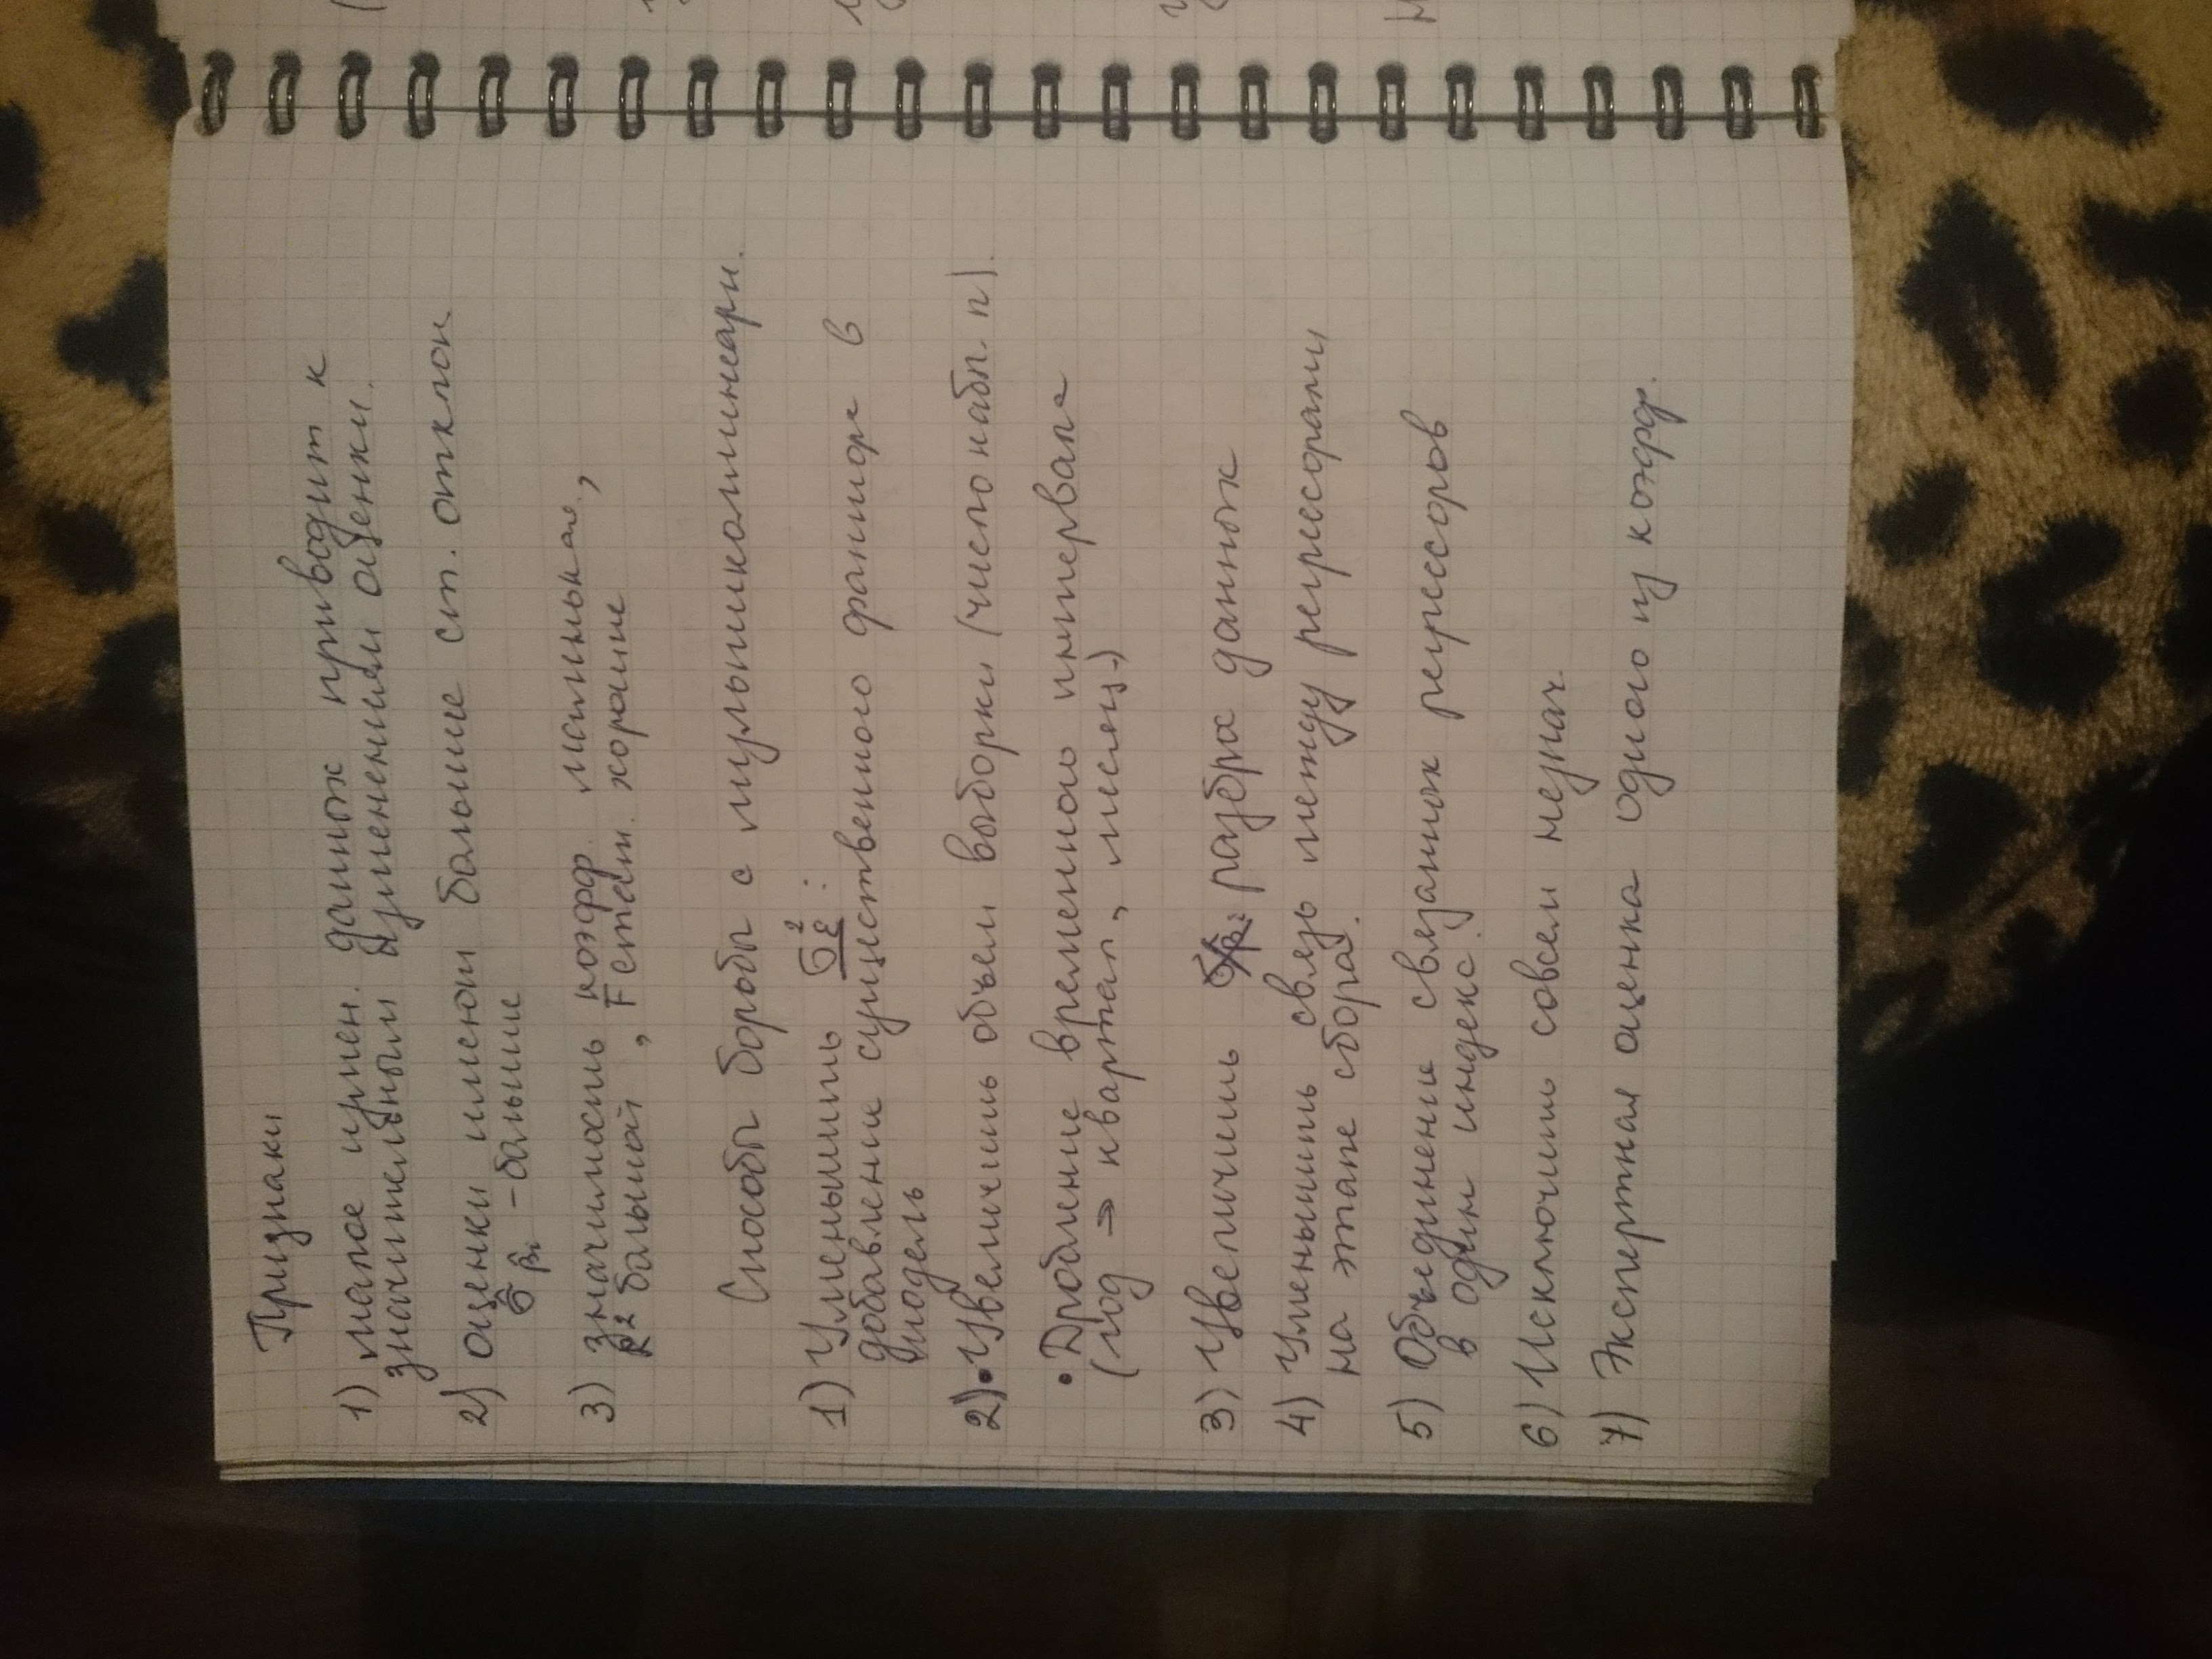 Признаки
1) малое измен. данных приводит к
значительным изменениям оценки.
2) оценки имеют большие ст. отклон
σ̂ β̂i - большие
3) значимость коэфф. маленькая,
R² большой, F стат. хорошие
Способы борьбы с мультиколлинеарн.
1) Уменьшить σ²ε :
добавление существенного фактора в
модель
2) • Увеличить объем выборки (число набл. n).
• Дробление временного интервала
(год ⇒ квартал, месяц)
3) Увеличить разброс данных
4) Уменьшить связь между регрессорами
на этапе сбора.
5) Объединение связанных регрессоров
в один индекс.
6) Исключить совсем незнач.
7) Экспертная оценка одного из коэфф.